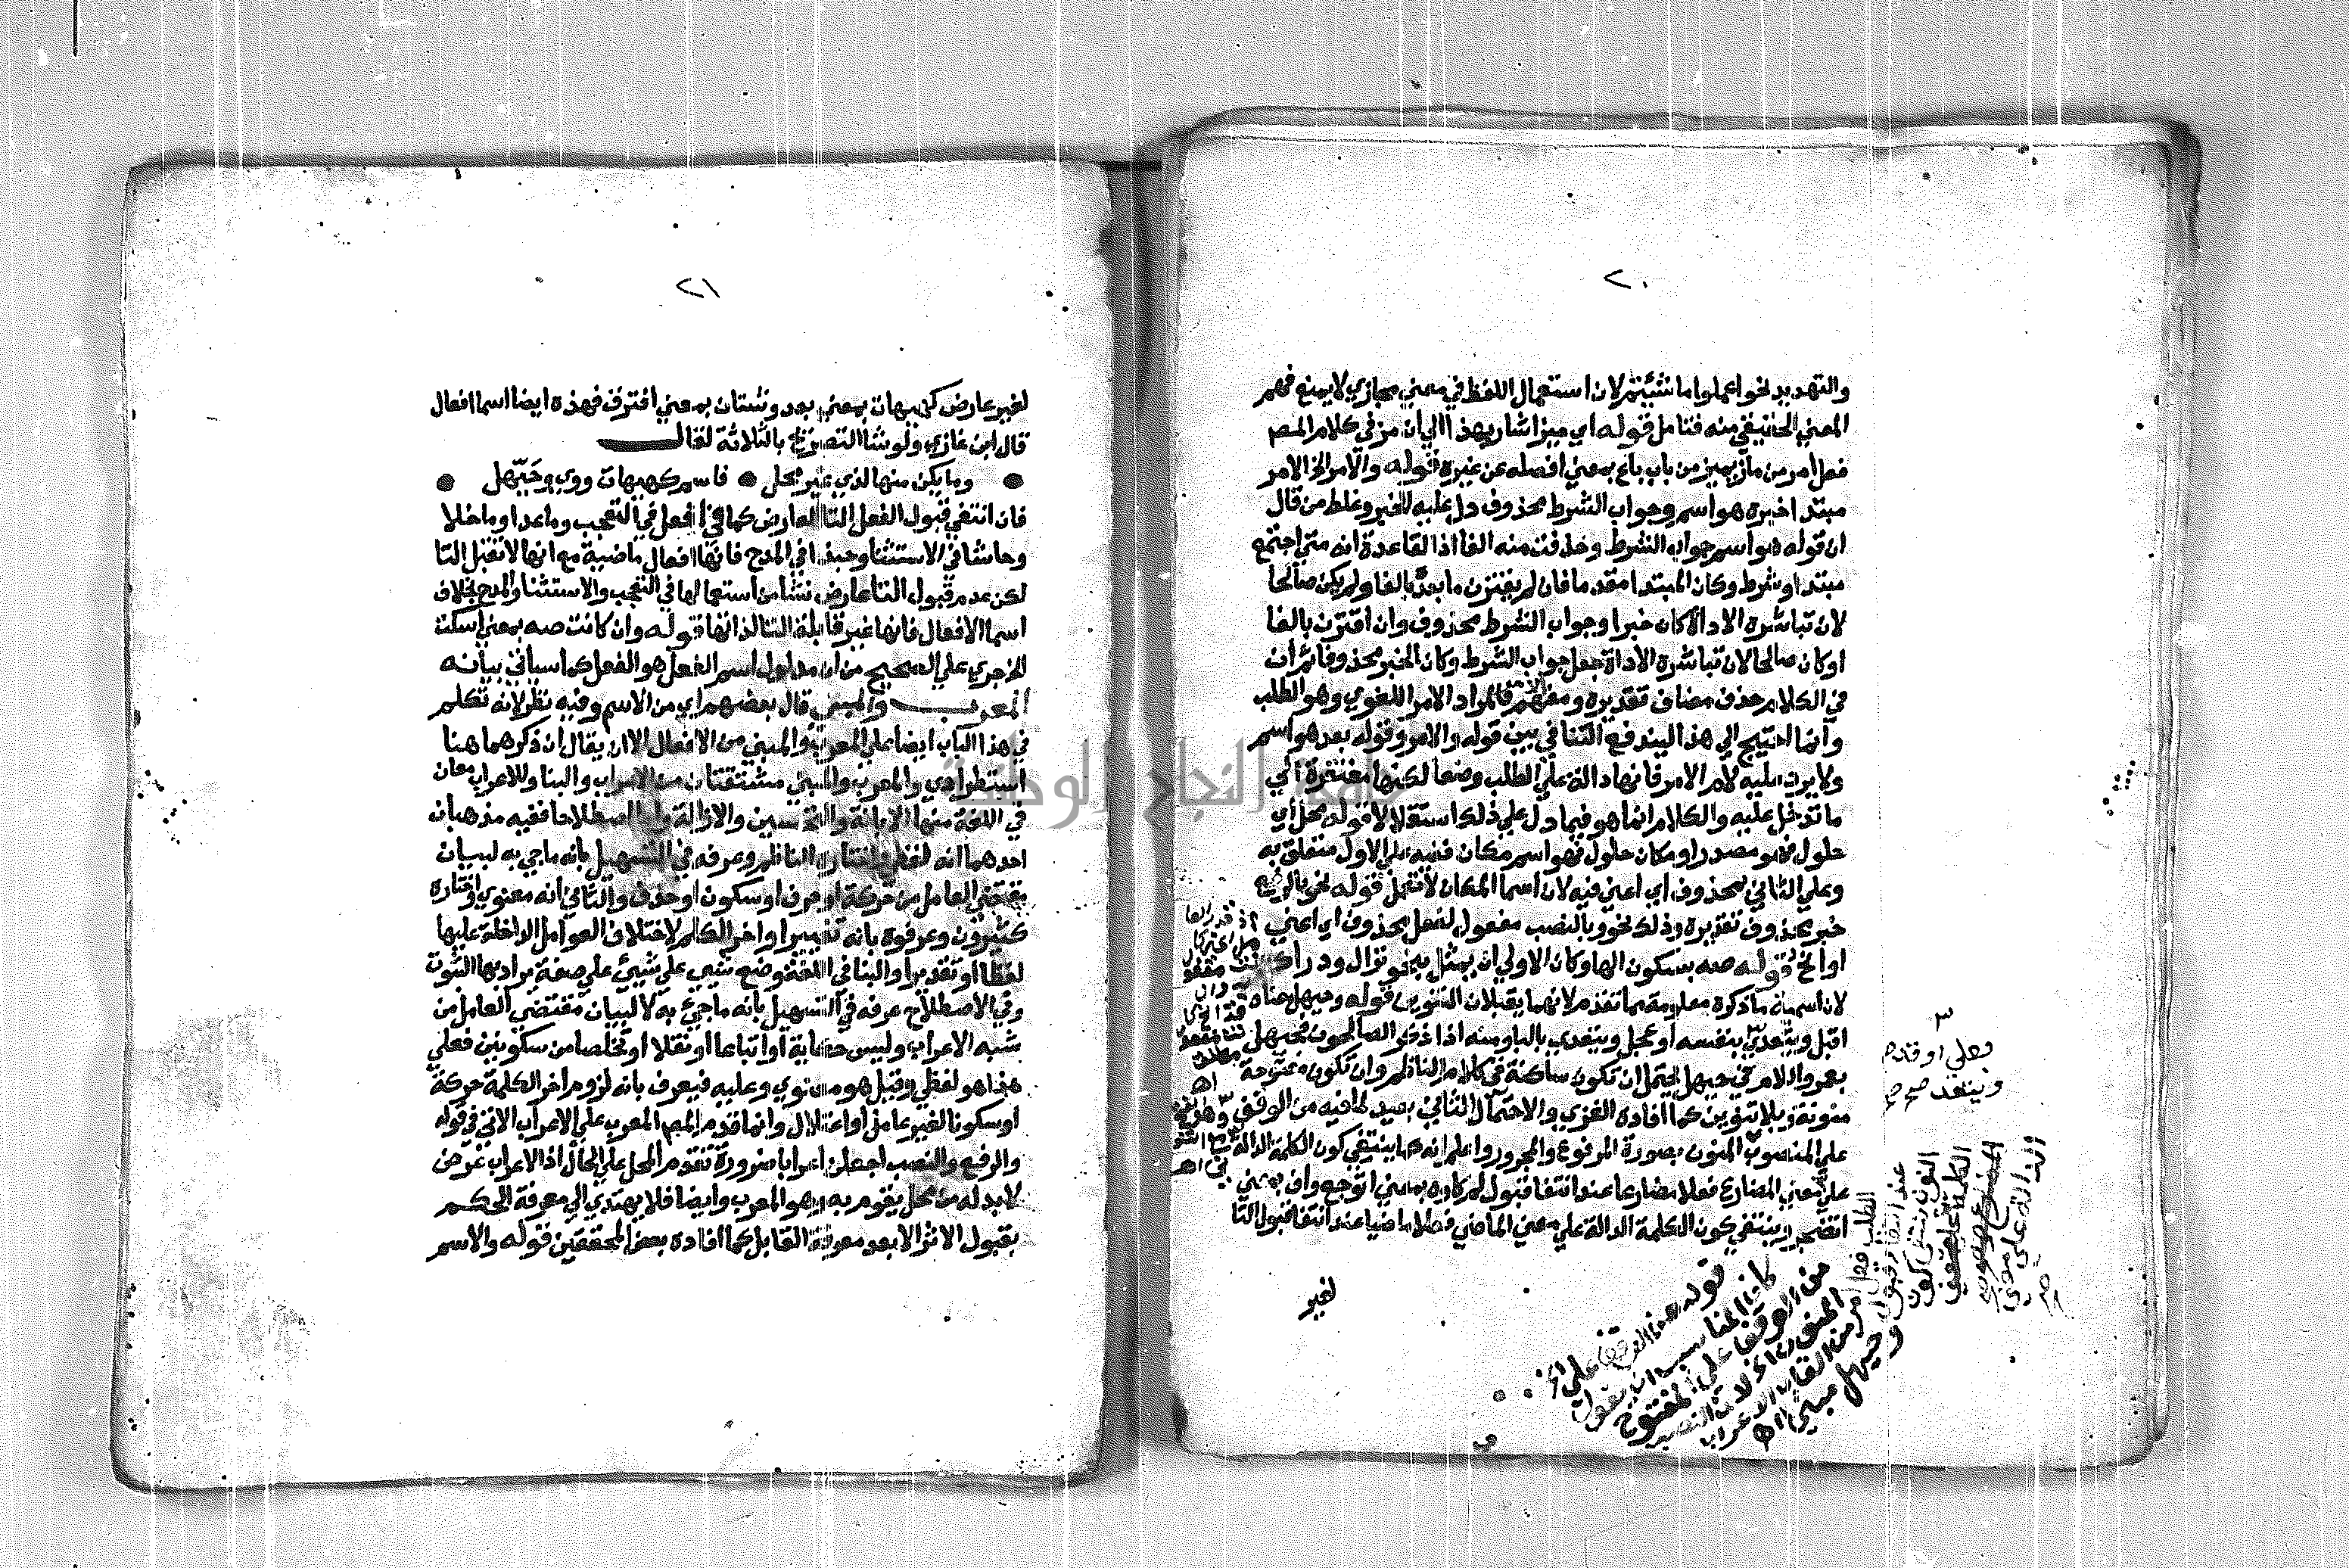 ٢٠
والتهديد نحو اعملوا ما شئتم لان استعمال اللفظ في معني مجازي لا يمنع فهم
المعني الحقيقي منه فتامل قوله اي ميز اشار بهذا الي ان مز في كلام المصم
فعل امر من ماز يميز من باب باع بمعني افصله عن غيره قوله والامر الخ الامر
مبتدا خبره هو اسم وجواب الشرط محذوف دل عليه الخبر وغلط من قال
ان قوله هو اسم جواب الشرط وحذفت منه الفا اذ القاعدة انه متي اجتمع
مبتدا وشرط وكان المبتدا مقدما فان لم يقترن ما بعد بالفا ولم يكن صالحا
لان تباشره الاداة كان خبرا وجواب الشرط محذوف وان اقترن بالفا
او كان صالحا لان تباشره الاداة جعل جواب الشرط وكان الخبر محذوفا ثم ان
في الكلام حذف مضاف تقديره ومفهم الامر فالمراد الامر اللغوي وهو الطلب
وانما احتيج الي هذا ليندفع التنافي بين قوله والامر وقوله بعد هو اسم
ولا يرد عليه لام الامر فانها دالة علي الطلب وضعا لكنها مفتقرة الي
ما تدخل عليه والكلام انما هو فيما دل علي ذلك استقلالا قوله محل اي
حلول فهو مصدر او مكان حلول فهو اسم مكان ففيه علي الاول متعلق به
وعلي الثاني بمحذوف اي اعني فيه لان اسما المكان لا تعمل قوله نحو بالرفع
خبر محذوف تقديره وذلك نحو وبالنصب مفعول لفعل محذوف اي اعني
او انح قوله صه بسكون الها وكان الاولي ان يمثل بنحو نزال ودراك
لان اسمية ما ذكره معلومة مما تقدم لانهما يقبلان التنوين قوله وحيهل معناه
اقبل ويتعدي بنفسه او عجل ويتعدي بالبا ومنه اذا ذكر الصالحون فحيهلا
بعمر واللام في حيهل يحتمل ان تكون ساكنة في كلام الناظم وان تكون مفتوحة
منونة وبلا تنوين كما افاده الغزي والاحتمال الثاني بعيد لما فيه من الوقف
علي المنصوب المنون بصورة المرفوع والمجرور واعلم انه كما ينتفي كون الكلمة الدالة
علي معني المضارع فعلا مضارعا عند انتفا قبول لم كاوه بمعني اتوجع واف بمعني
اتضجر وينتفي كون الكلمة الدالة علي معني الماضي فعلا ماضيا عند انتفا قبول التا
لغير
٣
وعلي او قد
الدالة علي معني
الكلمة
النون ينتفي كون
عند انتفا قبول
الطلب فعل
قوله من الوقف علي الخ
كان المناسب ان يقول
من الوقف علي المفتوح
وحيهل مبني اه
٢١
لغير عارض كهيهات بمعني بعد وشتان بمعني افترق فهذه ايضا اسما افعال
قال ابن غازي ولو شا التصريح بالثلاثة لقال
وما يكن منها لذي غير محل فاسم كهيهات ووي وحيهل
فان انتفي قبول الفعل التا لعارض كما في افعل في التعجب وما عدا وما خلا
وحاشا في الاستثنا وحبذا في المدح فانها افعال ماضية مع انها لا تقبل التا
لكن عدم قبول التا عارض نشا من استعمالها في التعجب والاستثنا والمدح بخلاف
اسما الافعال فانها غير قابلة التا لذاتها قوله وان كانت صه بمعني اسكت
الخ جري علي الصحيح من ان مدلول اسم الفعل هو الفعل كما سياتي بيانه
المعرب والمبني قال بعضهم اي من الاسم وفيه نظر لانه تكلم
في هذا الباب ايضا علي المعرب والمبني من الافعال الا ان يقال ان ذكرهما هنا
استطرادي والمعرب والمبني مشتقتان من الاعراب والبنا وللاعراب معان
في اللغة منها الابانة والتحسين والازالة واما اصطلاحا ففيه مذهبان
احدهما انه لفظي واختاره الناظم وعرفه في التسهيل بانه ما جي به لبيان
مقتضي العامل من حركة او حرف او سكون او حذف والثاني انه معنوي واختاره
كثيرون وعرفوه بانه تغيير اواخر الكلم لاختلاف العوامل الداخلة عليها
لفظا او تقديرا والبنا في اللغة وضع شيي علي شيئ علي صفة يراد بها الثبوت
وفي الاصطلاح عرفه في التسهيل بانه ما جيئ به لا لبيان مقتضي العامل من
شبه الاعراب وليس حكاية او اتباعا او نقلا او تخلصا من سكونين فعلي
هذا هو لفظي وقيل هو معنوي وعليه فيعرف بانه لزوم اخر الكلمة حركة
او سكونا لغير عامل او اعتلال وانما قدم المص المعرب علي الاعراب الاتي في قوله
والرفع والنصب اجعلن اعرابا ضرورة تقدم المحل علي الحال اذ الاعراب عرض
لا بد له من محل يقوم به وهو المعرب وايضا فلا يهتدي الي معرفة الحكم
بقبول الاثر الا بعد معرفة القابل كما افاده بعض المحققين قوله والاسم
جامعة النجاح الوطنية